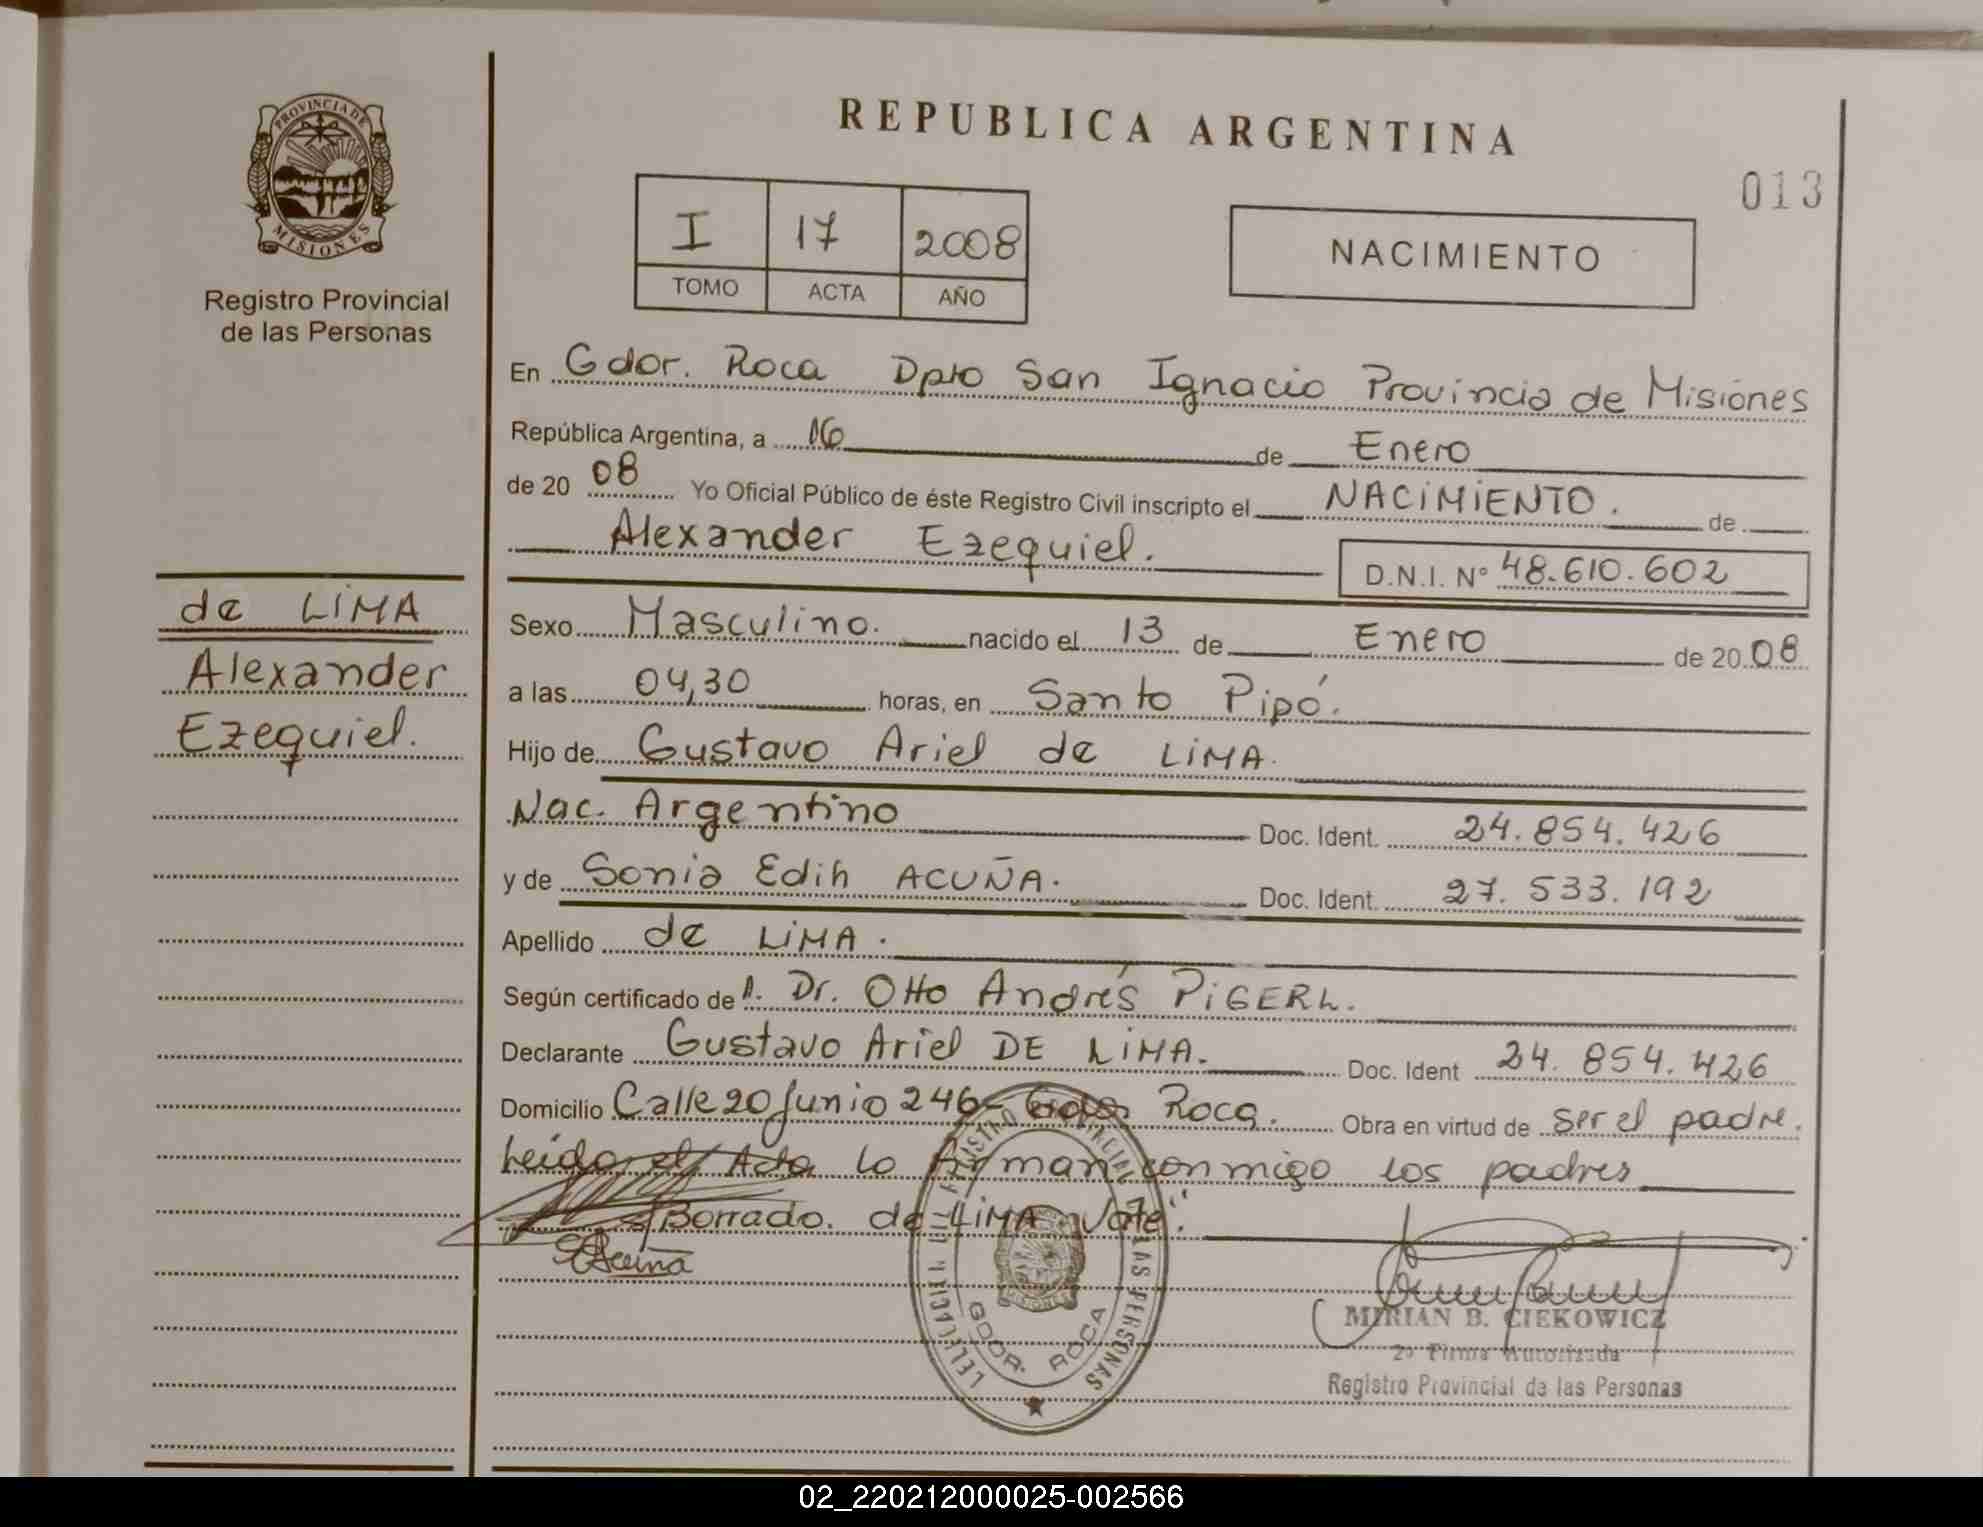 REPUBLICA ARGENTINA
013
PROVINCIA DE MISIONES
Registro Provincial
de las Personas
I 17 2008
TOMO ACTA AÑO
NACIMIENTO
En Gdor. Roca Dpto San Ignacio Provincia de Misiones
República Argentina, a 16 de Enero
de 20 08 Yo Oficial Público de éste Registro Civil inscripto el NACIMIENTO. de
Alexander Ezequiel. D.N.I. N° 48.610.602
de LIMA
Alexander
Ezequiel.
Sexo Masculino. nacido el 13 de Enero de 20 08
a las 04,30 horas, en Santo Pipó.
Hijo de Gustavo Ariel de LIMA.
Nac. Argentino Doc. Ident. 24.854.426
y de Sonia Edih ACUÑA. Doc. Ident. 27.533.192
Apellido de LIMA.
Según certificado de Dr. Otto Andrés PIGERL.
Declarante Gustavo Ariel DE LIMA. Doc. Ident 24.854.426
Domicilio Calle 20 Junio 246- Gdor Roca. Obra en virtud de ser el padre.
Leída el Acta lo firman conmigo los padres
Borrado. de LIMA Vale".
EAcuña
REGISTRO PROVINCIAL DE LAS PERSONAS
GDOR. ROCA
MISIONES
MIRIAN B. CIEKOWICZ
2° Firma Autorizada
Registro Provincial de las Personas
02_220212000025-002566